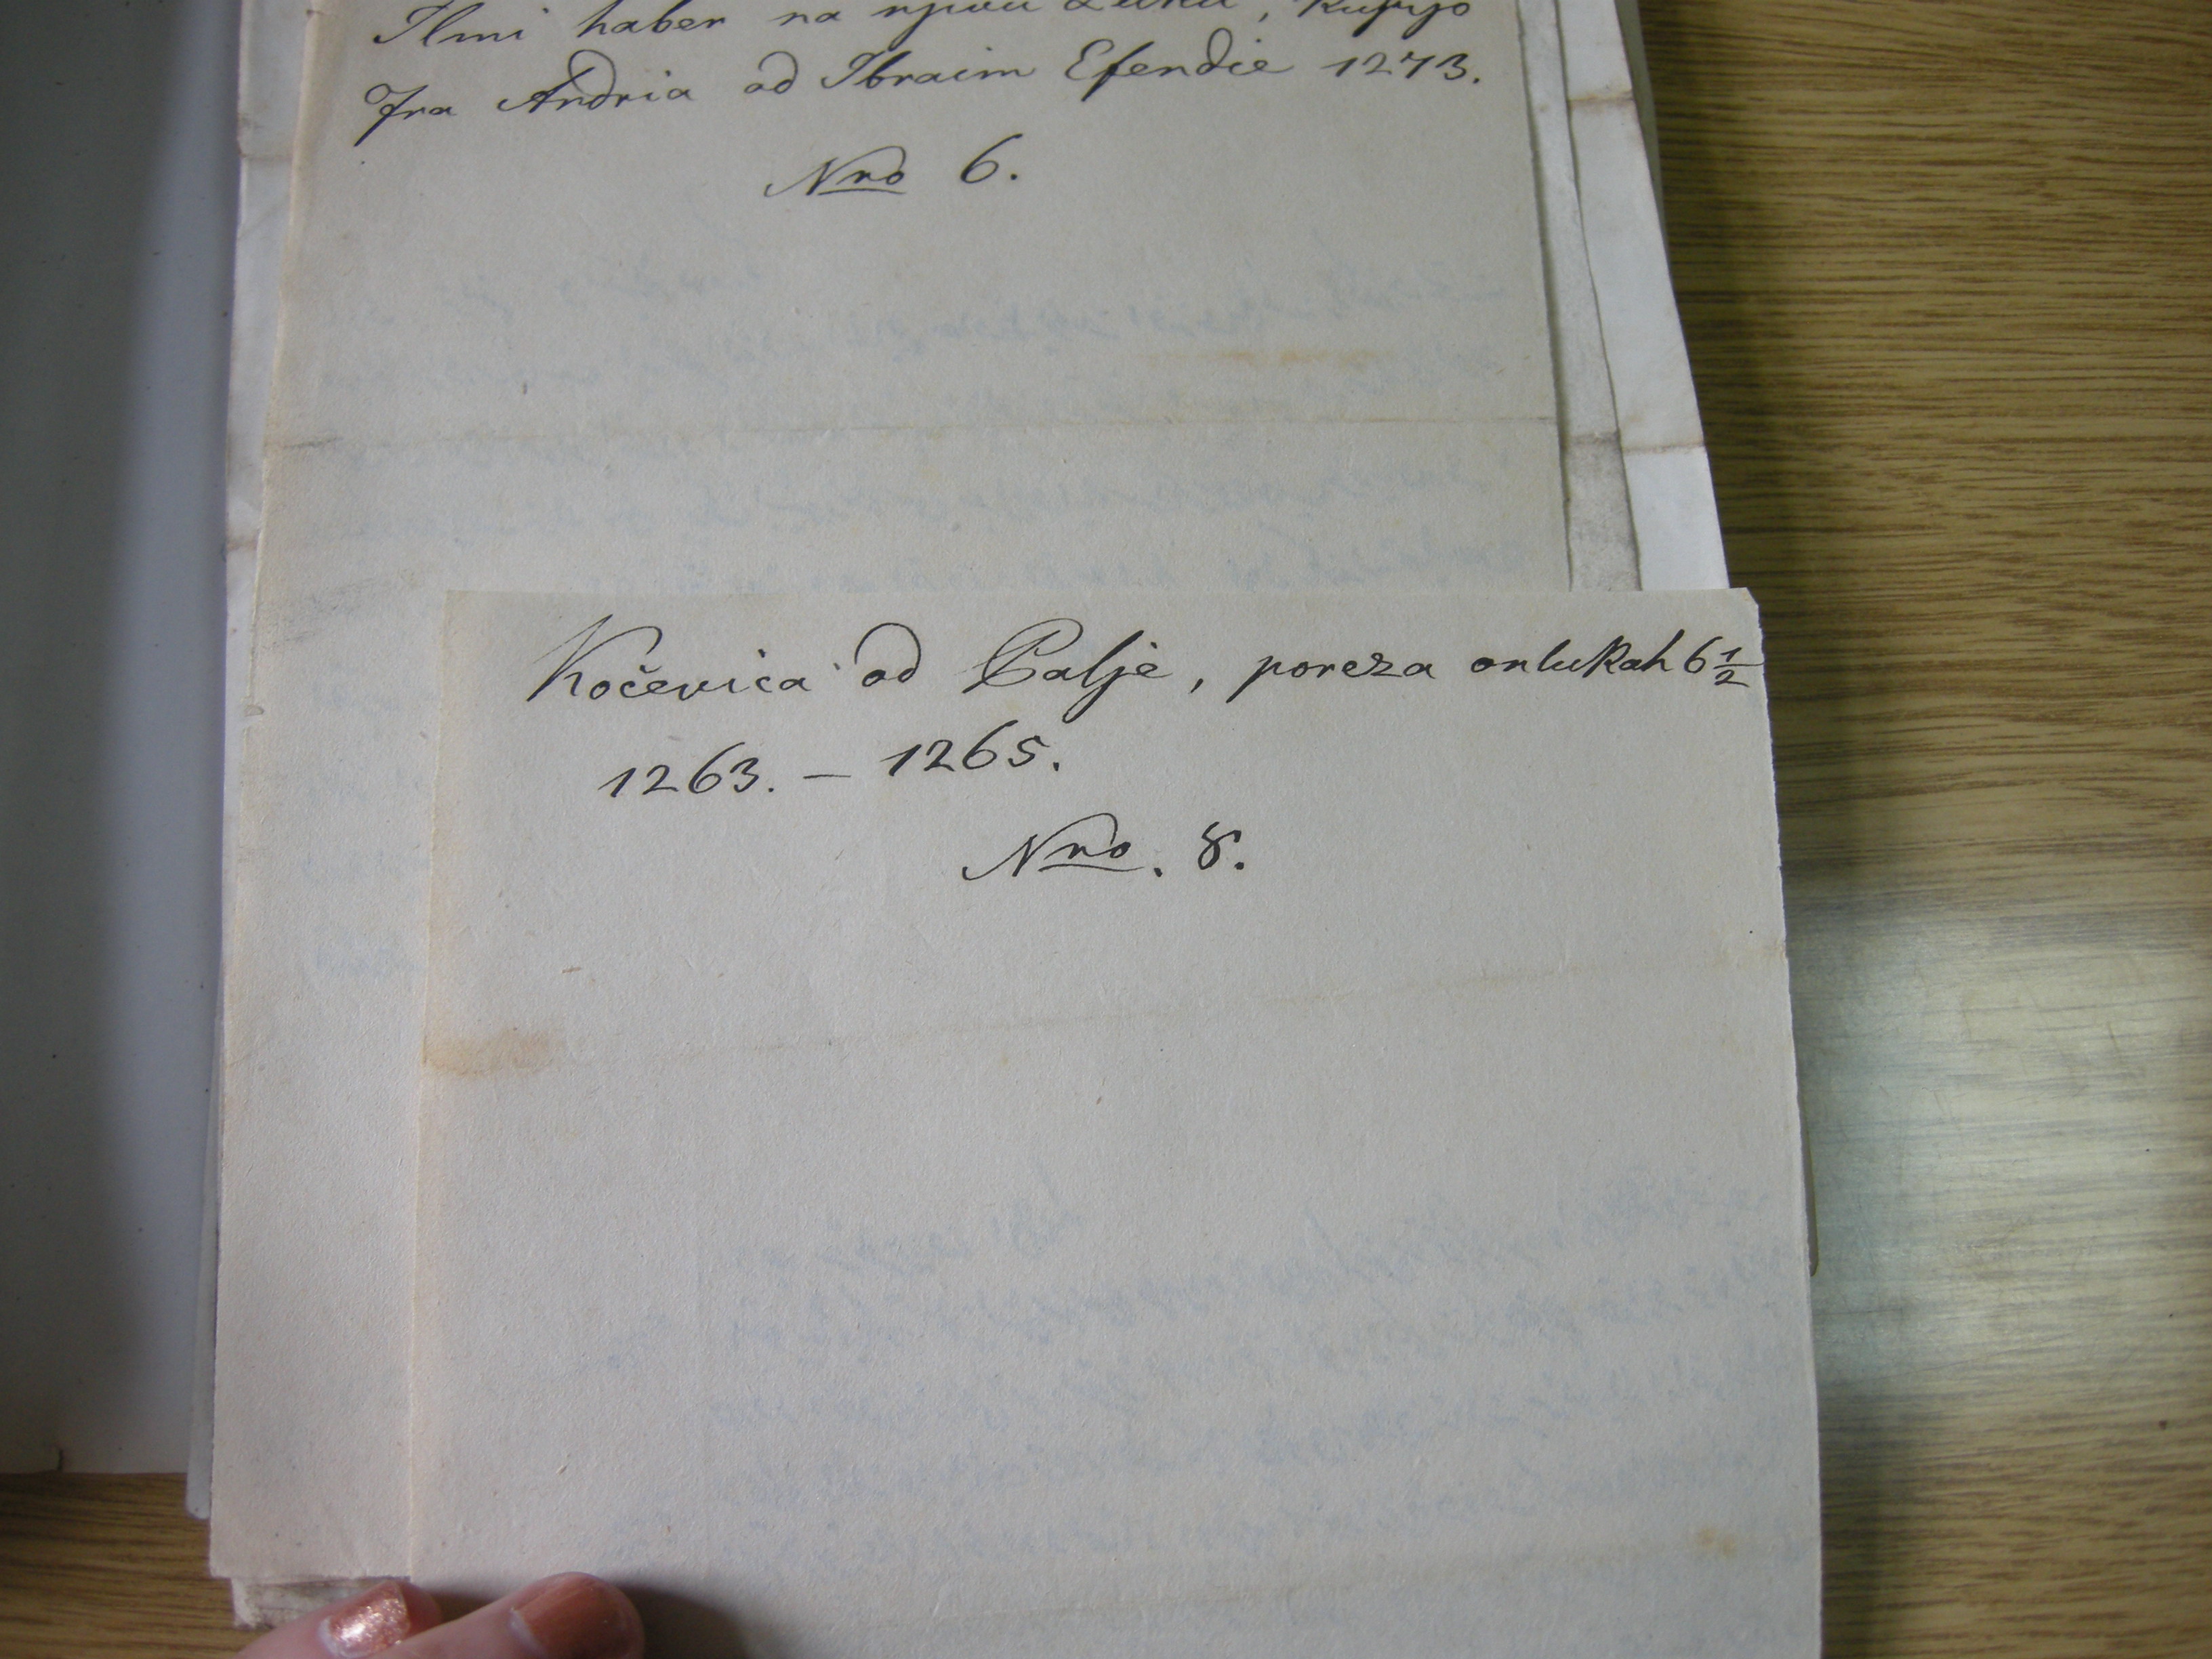 Ilmi haber na njivu Luku, kupljo
fra Andria od Ibraim Efendie 1273.
Nro 6.
Kočevica od Palje, poreza onlukah 6 1/2
1263. — 1265.
Nro. 8.